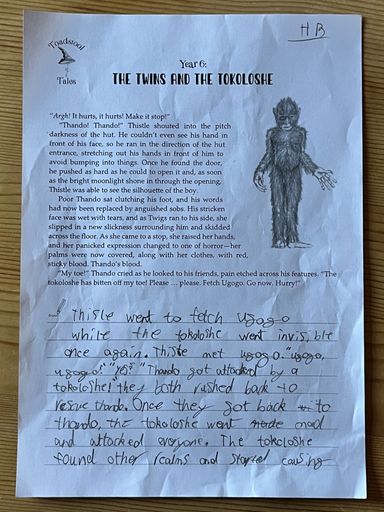 HB
Toadstool
Tales
Year 6:
THE TWINS AND THE TOKOLOSHE
"Argh! It hurts, it hurts! Make it stop!"
"Thando! Thando!" Thistle shouted into the pitch
darkness of the hut. He couldn't even see his hand in
front of his face, so he ran in the direction of the hut
entrance, stretching out his hands in front of him to
avoid bumping into things. Once he found the door,
he pushed as hard as he could to open it and, as soon
as the bright moonlight shone in through the opening,
Thistle was able to see the silhouette of the boy.
Poor Thando sat clutching his foot, and his words
had now been replaced by anguished sobs. His stricken
face was wet with tears, and as Twigs ran to his side, she
slipped in a new slickness surrounding him and skidded
across the floor. As she came to a stop, she raised her hands,
and her panicked expression changed to one of horror—her
palms were now covered, along with her clothes, with red,
sticky blood. Thando's blood.
"My toe!" Thando cried as he looked to his friends, pain etched across his features. "The
tokoloshe has bitten off my toe! Please … please. Fetch Ugogo. Go now. Hurry!"
Thistle went to fetch Ugogo
while the tokoloshe went invisible
once again. Thistle met ugogo. "ugogo,
ugogo!" "yes" "Thando got attacked by a
tokoloshe! they both rushed back to
rescue thando. Once they got back to
thando, the tokoloshe went mad
and attacked everyone. The tokoloshe
found other realms and started causing